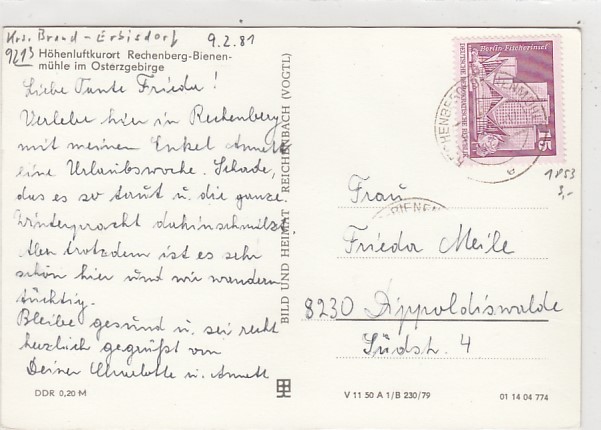 Krs. Brand-Erbisdorf 9.2.81
9213 Höhenluftkurort Rechenberg-Bienen-
mühle im Osterzgebirge
Liebe Tante Frieda!
Verlebe hier in Rechenberg
mit meinem Enkel Annett
eine Urlaubswoche. Schade,
das es so taut u. die ganze
Winterpracht dahinschmilzt.
Aber trotzdem ist es sehr
schön hier und wir wandern
tüchtig.
Bleibe gesund u. sei recht
herzlich gegrüßt von
Deiner Charlotte u. Annett
DDR 0,20 M
BILD UND HEIMAT REICHENBACH (VOGTL)
Berlin Fischerinsel
DEUTSCHE DEMOKRATISCHE REPUBLIK
15
a
1853
3,-
-BIENEN
Frau
Frieda Meile
8230 Dippoldiswalde
Südstr. 4
V 11 50 A 1/B 230/79
01 14 04 774